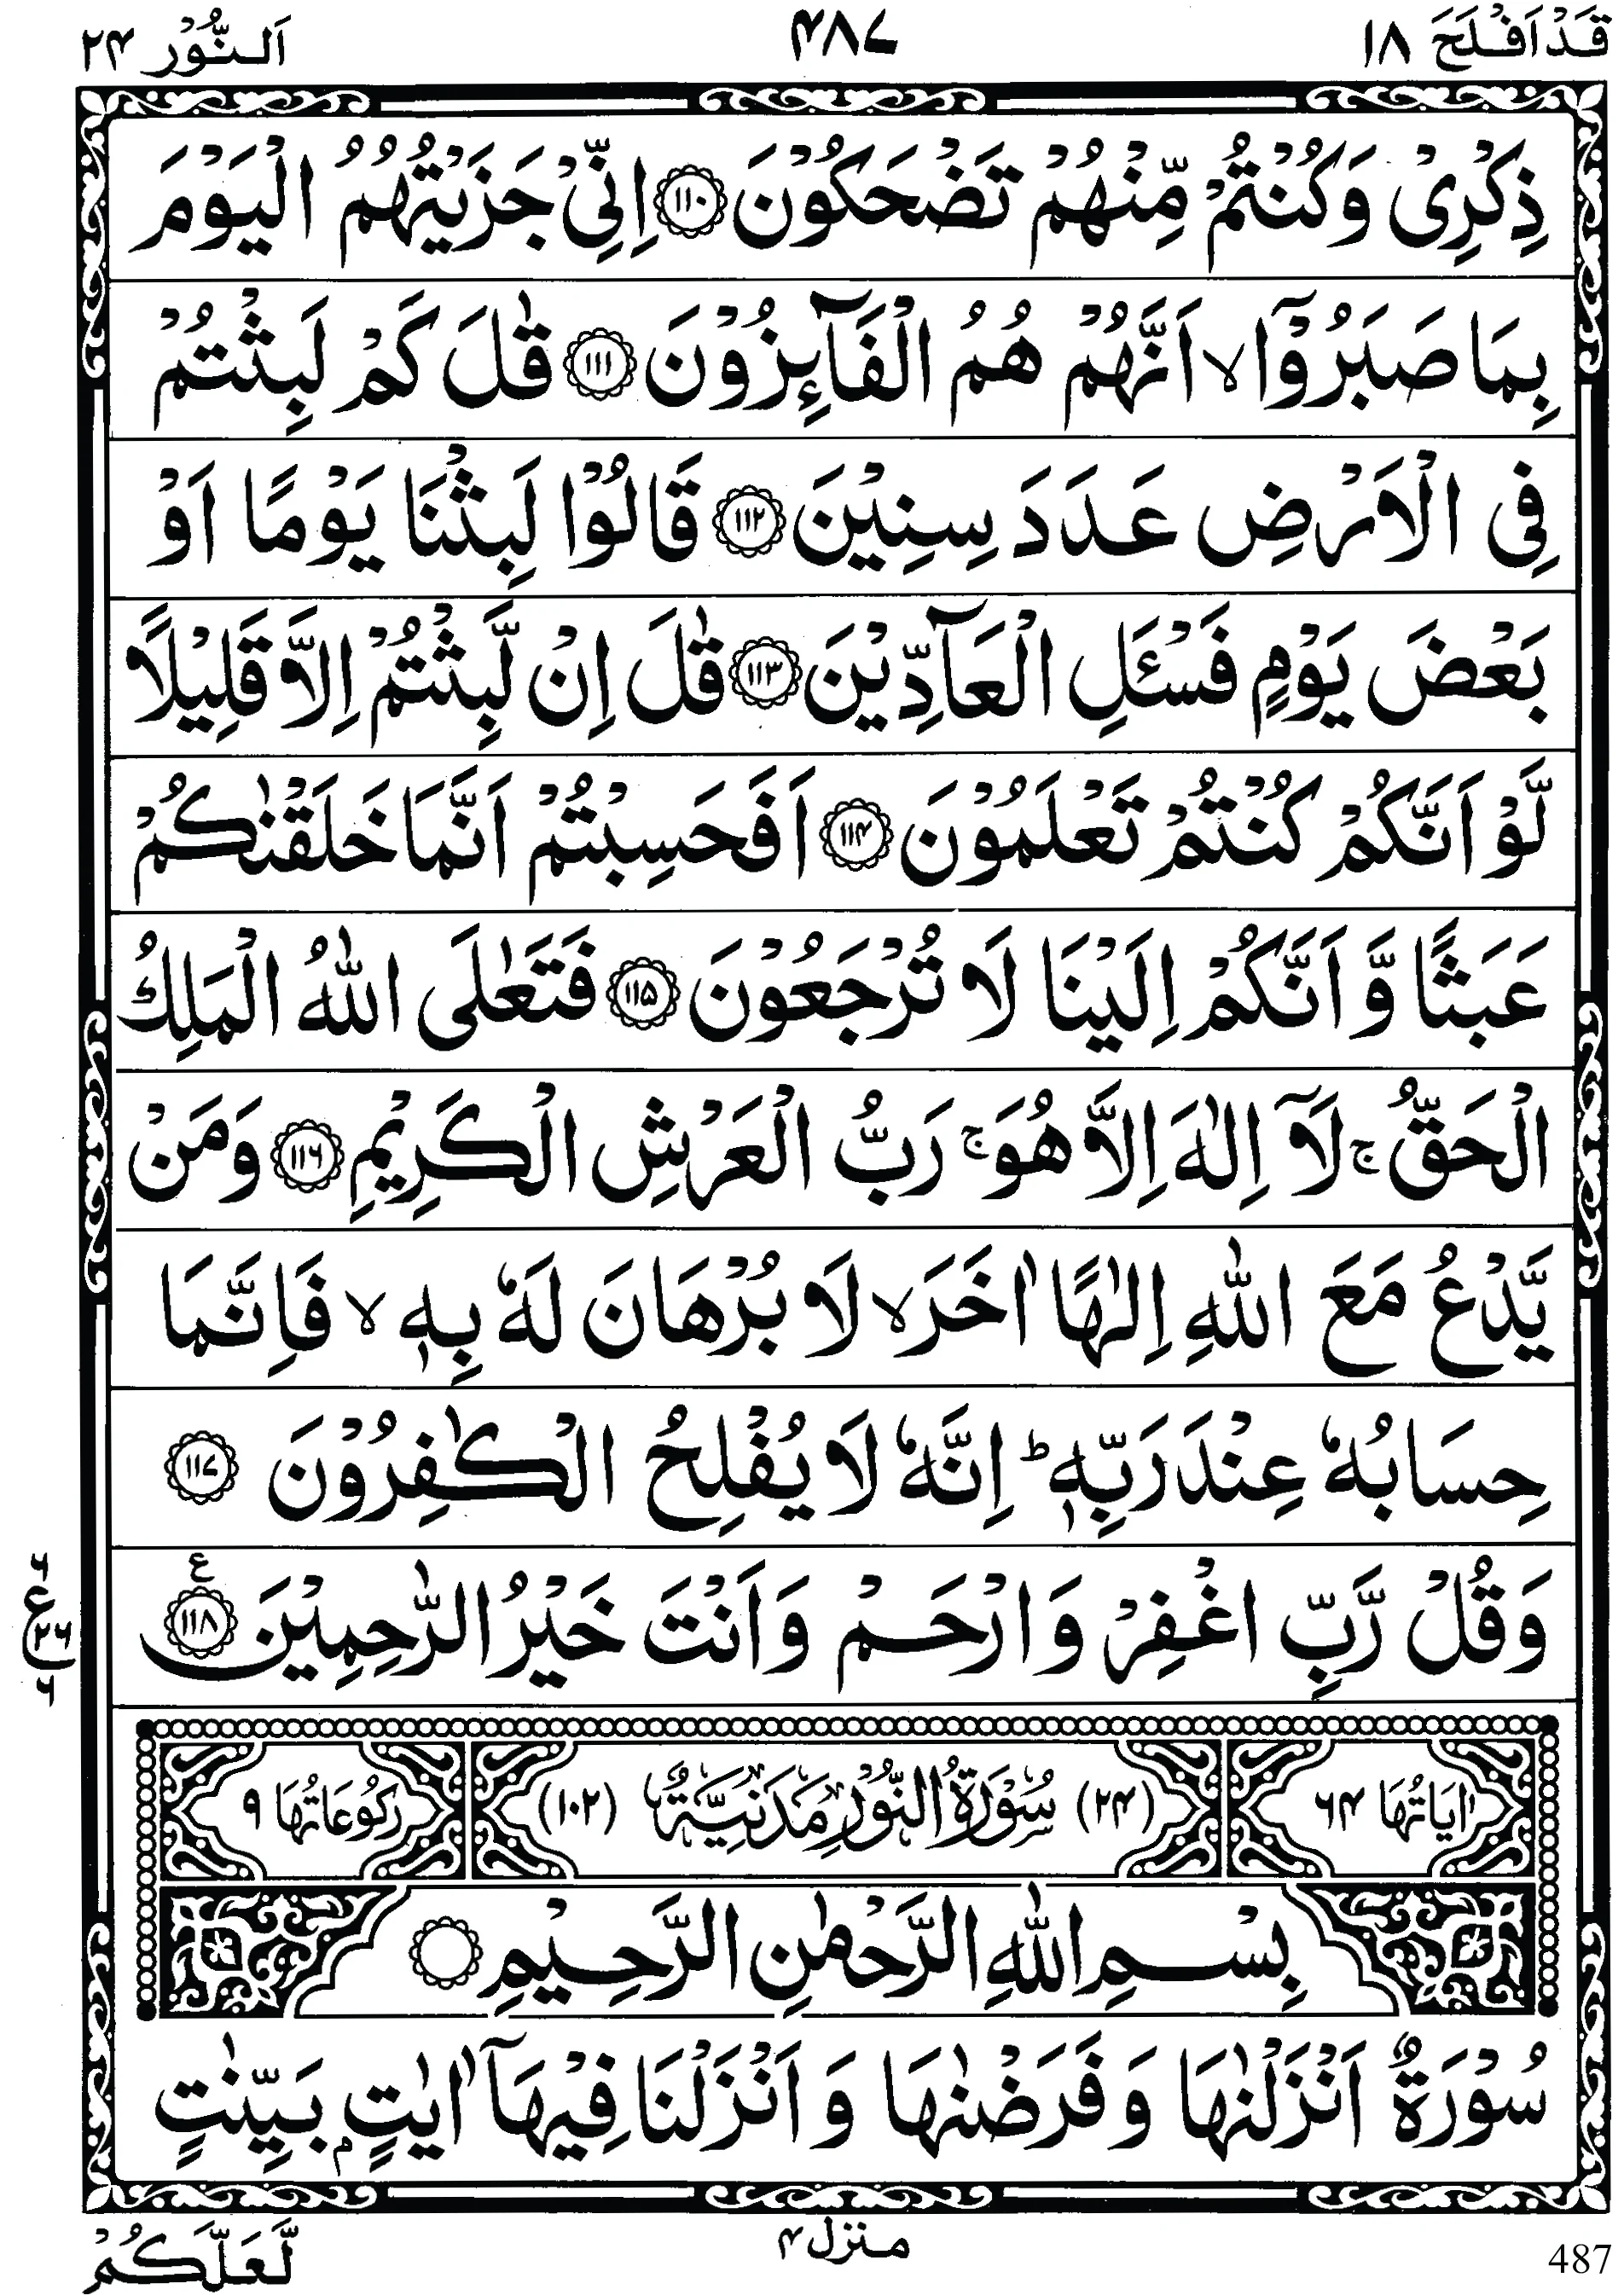 قَدْ اَفْلَحَ ١٨ ۴٨۷ اَلنُّوْر ٢۴
ذِكْرِیْ وَكُنْتُمْ مِّنْهُمْ تَضْحَكُوْنَ ﴿١١٠﴾ اِنِّیْ جَزَیْتُهُمُ الْیَوْمَ
بِمَا صَبَرُوْۤا ۙ اَنَّهُمْ هُمُ الْفَآىِٕزُوْنَ ﴿١١١﴾ قٰلَ كَمْ لَبِثْتُمْ
فِی الْاَرْضِ عَدَدَ سِنِیْنَ ﴿١١٢﴾ قَالُوْا لَبِثْنَا یَوْمًا اَوْ
بَعْضَ یَوْمٍ فَسْـَٔلِ الْعَآدِّیْنَ ﴿١١٣﴾ قٰلَ اِنْ لَّبِثْتُمْ اِلَّا قَلِیْلًا
لَّوْ اَنَّكُمْ كُنْتُمْ تَعْلَمُوْنَ ﴿١١۴﴾ اَفَحَسِبْتُمْ اَنَّمَا خَلَقْنٰكُمْ
عَبَثًا وَّ اَنَّكُمْ اِلَیْنَا لَا تُرْجَعُوْنَ ﴿١١۵﴾ فَتَعٰلَی اللّٰهُ الْمَلِكُ
الْحَقُّ ۚ لَاۤ اِلٰهَ اِلَّا هُوَ ۚ رَبُّ الْعَرْشِ الْكَرِیْمِ ﴿١١۶﴾ وَمَنْ
یَّدْعُ مَعَ اللّٰهِ اِلٰهًا اٰخَرَ ۙ لَا بُرْهَانَ لَهٗ بِهٖ ۙ فَاِنَّمَا
حِسَابُهٗ عِنْدَ رَبِّهٖ ؕ اِنَّهٗ لَا یُفْلِحُ الْكٰفِرُوْنَ ﴿١١۷﴾
وَقُلْ رَّبِّ اغْفِرْ وَارْحَمْ وَاَنْتَ خَیْرُ الرّٰحِمِیْنَ ﴿١١٨﴾ ع
۶
ع ٢۶
۶
اٰیَاتُهَا ۶۴ (٢۴) سُوْرَةُ النُّوْرِ مَدَنِیَّةٌ (١٠٢) رُكُوْعَاتُهَا ٩
بِسْمِ اللّٰهِ الرَّحْمٰنِ الرَّحِیْمِ
سُوْرَةٌ اَنْزَلْنٰهَا وَفَرَضْنٰهَا وَاَنْزَلْنَا فِیْهَاۤ اٰیٰتٍۭ بَیِّنٰتٍ
لَّعَلَّكُمْ
منزل ۴
487